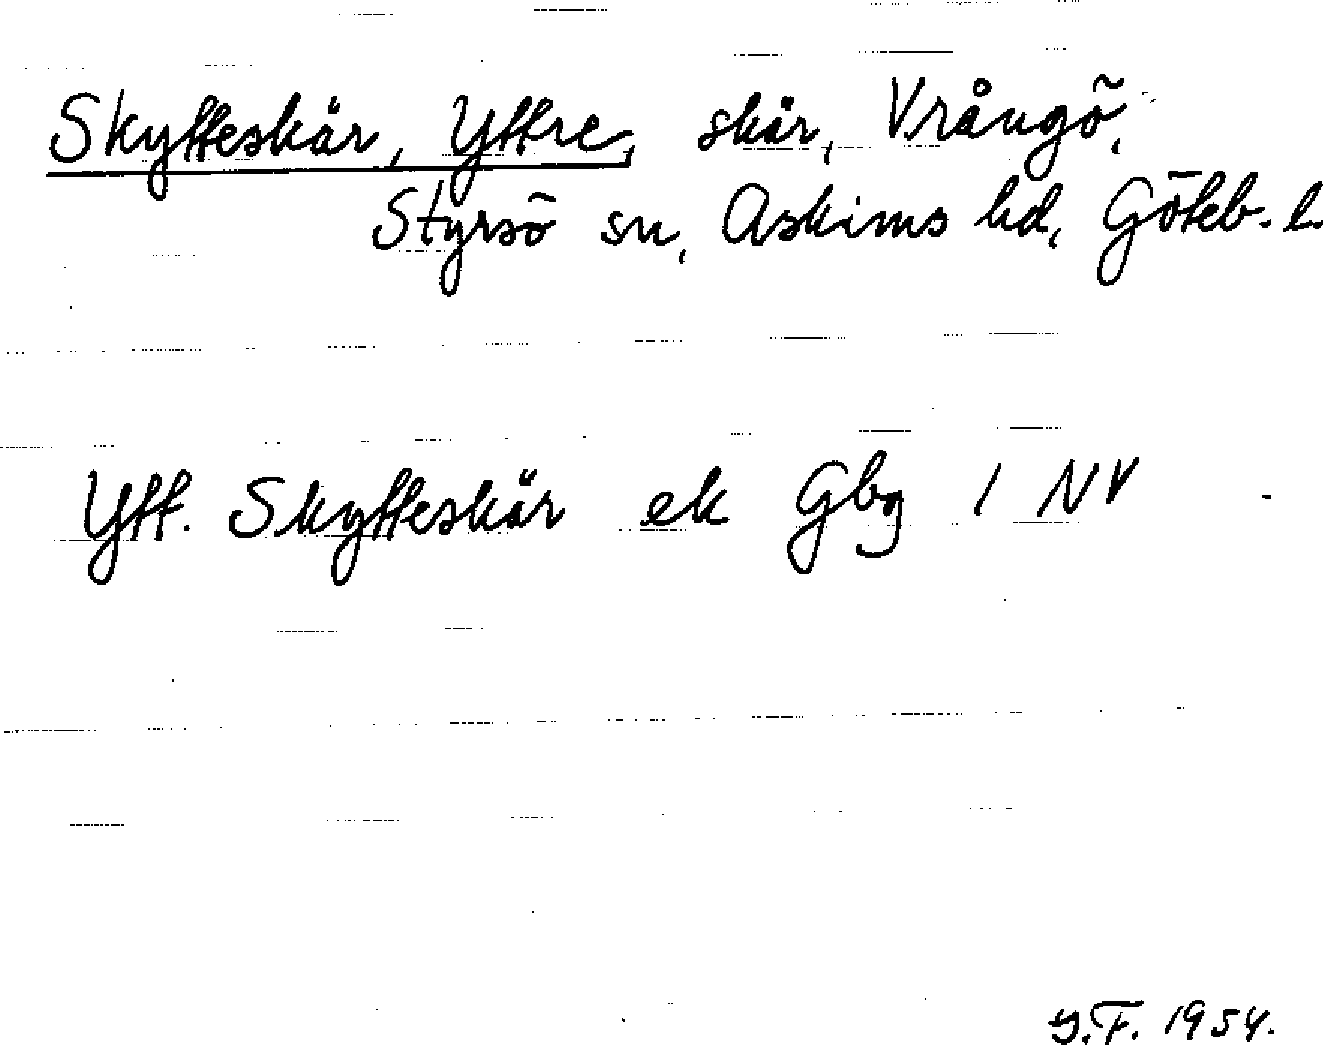 Skytteskär, Yttre, skär, Vrångö,
Styrsö sn, Askims hd, Göteb. l.
Ytt. Skytteskär ek Gbg 1 NV
G.F. 1954.